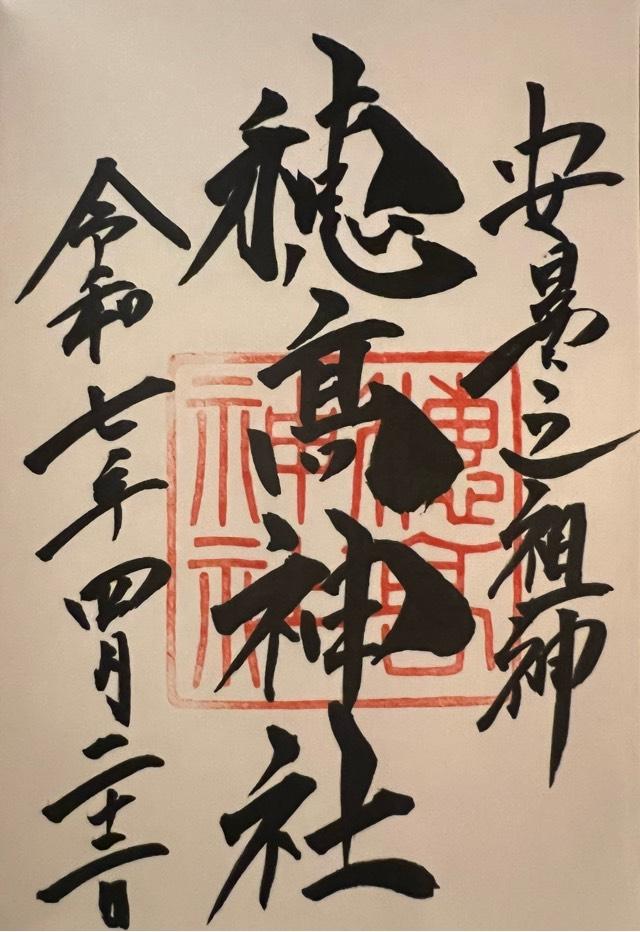 安曇之祖神
穂髙神社
令和七年四月二十二日
穂高
神社